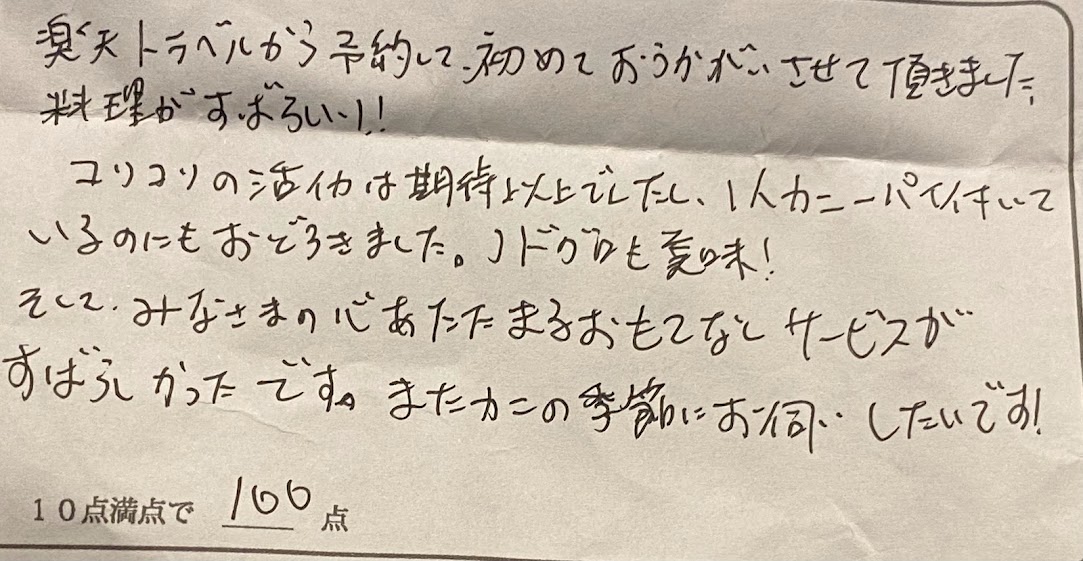 楽天トラベルから予約して、初めておうかがいさせて頂きました、
料理がすばらいい!!
コリコリの活イカは期待以上でしたし、1人カニ一パイ付いて
いるのにもおどろきました。ノドグロも美味!
そして、みなさまの心あたたまるおもてなしサービスが
すばらしかったです。またカニの季節にお伺いしたいです!
10点満点で 100 点